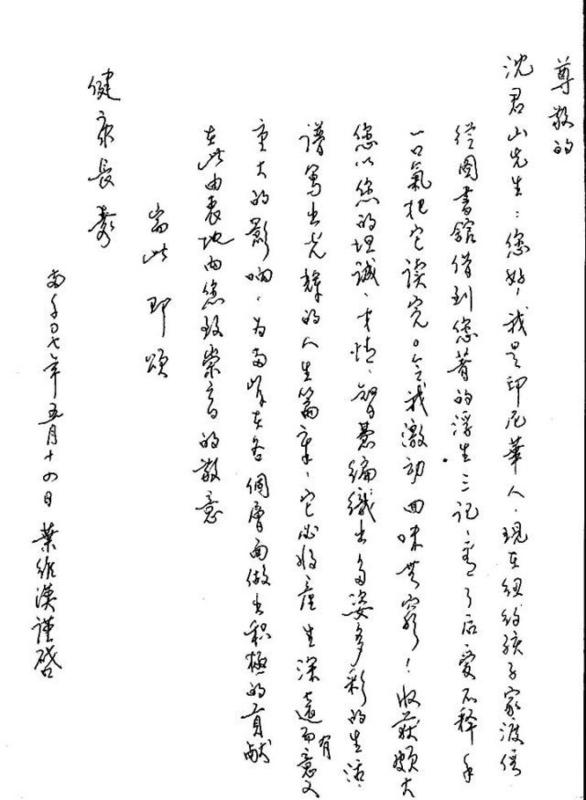 尊敬的
沈君山先生：您好，我是印尼華人，現在紐約孩子家渡假
從圖書館借到您著的浮生三記，看了后愛不釋手
一口氣把它讀完。令我激动回味無窮！收获頗大
您以您的坦誠、才情、智慧編織出多姿多彩的生活，
譜寫出光輝的人生篇章，它必將產生深遠而有意义
重大的影响，为兩岸在各個層面做出积極的貢献
在此由衷地向您致崇高的敬意
耑此 即頌
健康長壽
年五月十四日 葉維漢謹啓